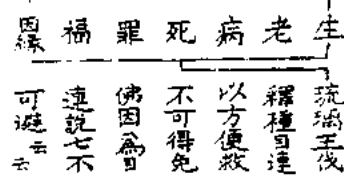 生
老
病
死
罪
福
因縁
琉璃王伐
釋種目連
以方便救
不可得免
佛因為目
連説七不
可避云云